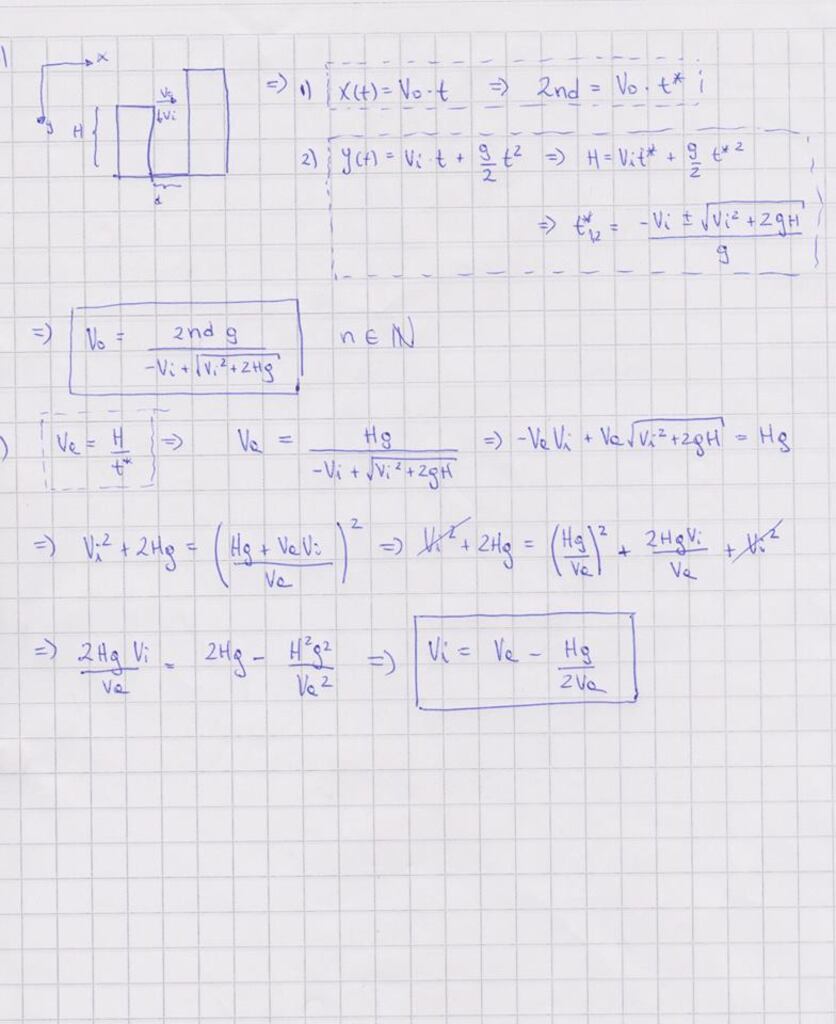 1
x
y
H
V₀
Vi
d
=> 1) x(t) = V₀ · t => 2nd = V₀ · t* i
2) y(t) = Vi · t + g/2 t² => H = Vi t* + g/2 t*²
=> t*₁,₂ = (-Vi ± √(Vi² + 2gH))/g
=> V₀ = 2nd g/(-Vi + √(Vi² + 2Hg)) n ∈ ℕ
) Ve = H/t* => Ve = Hg/(-Vi + √(Vi² + 2gH)) => -VeVi + Ve√(Vi² + 2gH) = Hg
=> Vi² + 2Hg = ((Hg + VeVi)/Ve)² => Vi² + 2Hg = (Hg/Ve)² + 2HgVi/Ve + Vi²
=> 2Hg Vi/Ve = 2Hg - H²g²/Ve² => Vi = Ve - Hg/2Ve